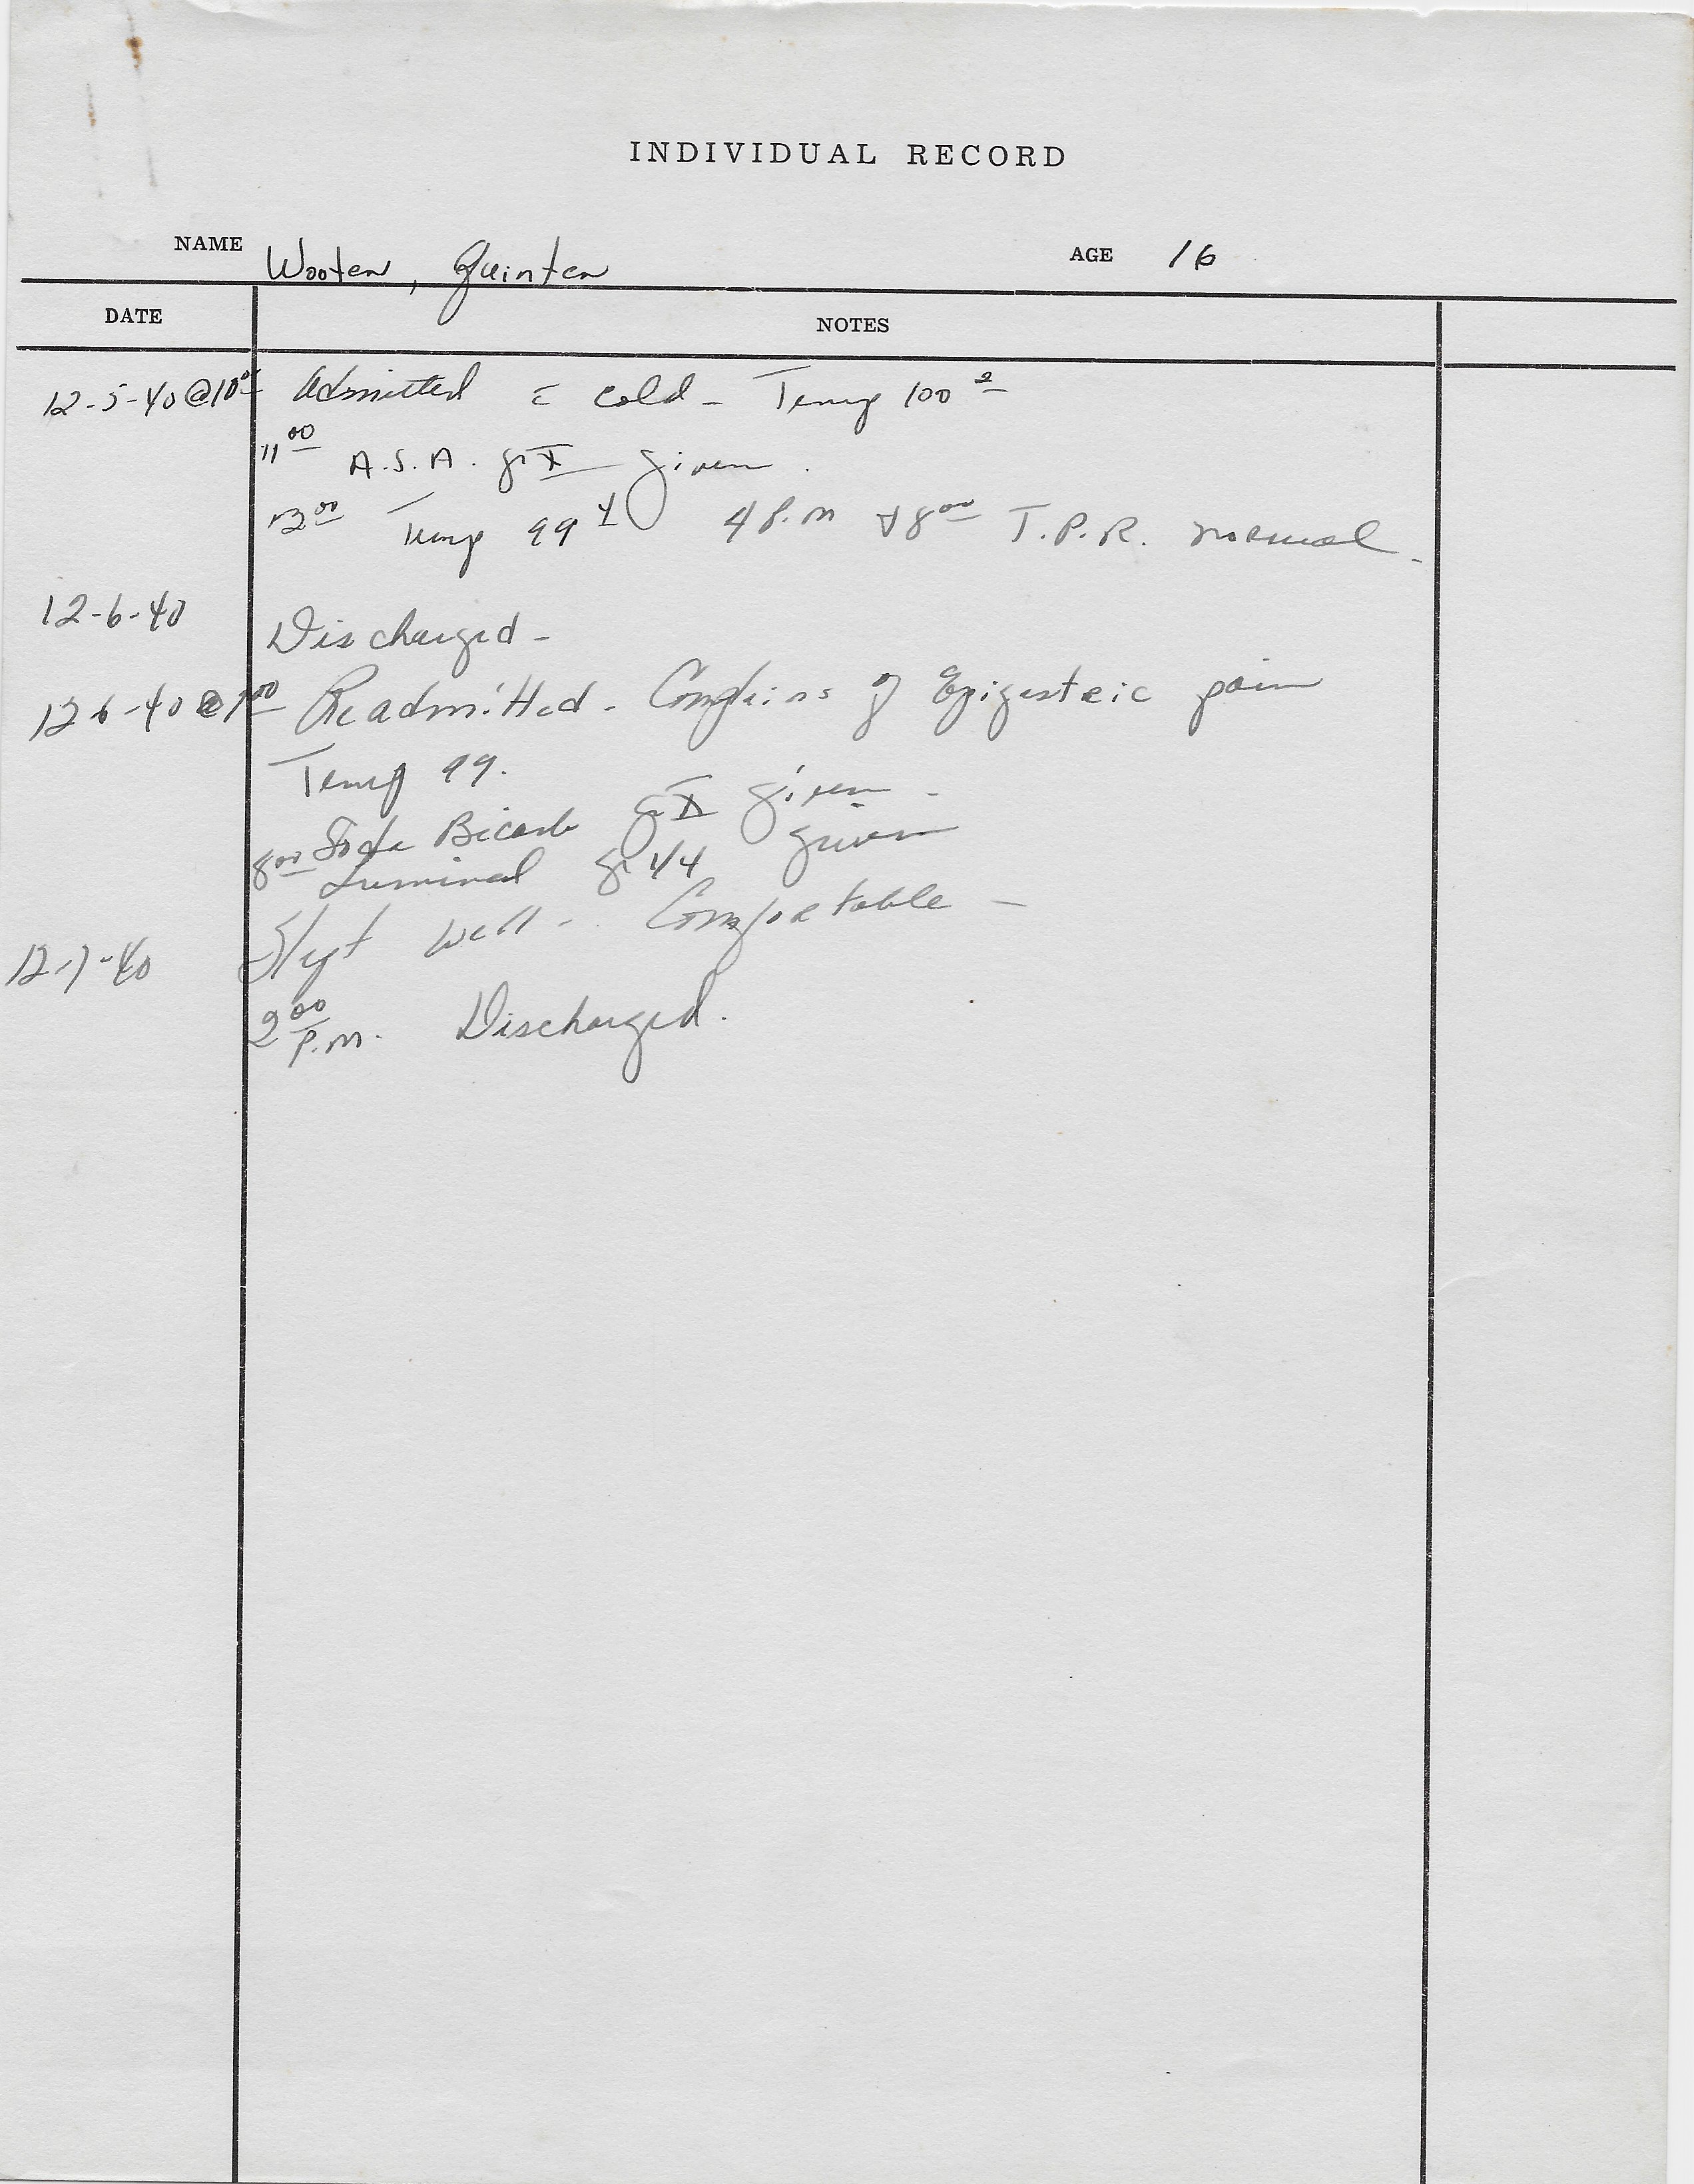 INDIVIDUAL RECORD
NAME Wooten, Quinten AGE 16
DATE NOTES
12-5-40 @ 10⁰⁰ Admitted c̄ cold - Temp 100²
11⁰⁰ A.S.A. gr X given.
12⁰⁰ Temp 99⁴ 4 P.M & 8⁰⁰ T.P.R. normal.
12-6-40 Discharged -
12-6-40 @ 7⁰⁰ Readmitted - Complains of Epigastric pain
Temp 99.
8⁰⁰ Soda Bicarb gr X given -
Luminal gr 1/4 given
12-7-40 Slept well - Comfortable -
2⁰⁰ P.M. Discharged.